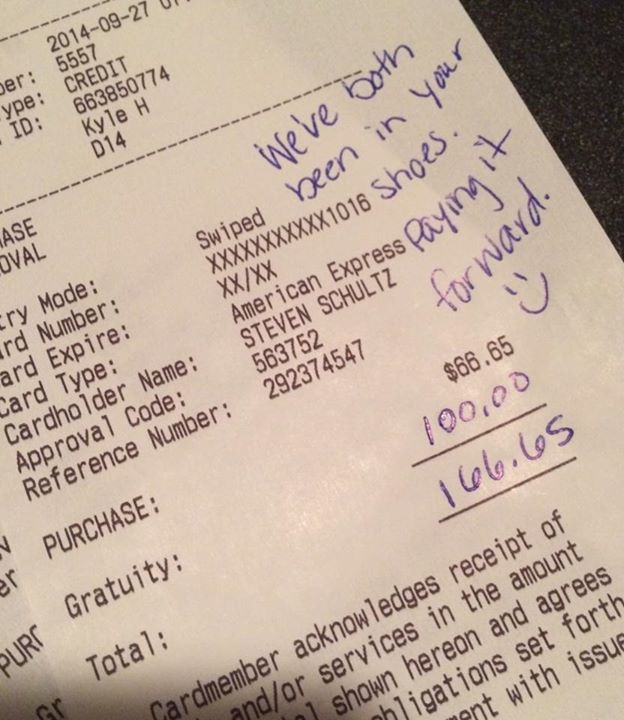 2014-09-27
ber: 5557
ype: CREDIT
ID: 663850774
Kyle H
D14
We've both
been in your
shoes.
Paying it
forward.
:)
HASE
OVAL
try Mode: Swiped
rd Number: XXXXXXXXXXX1016
ard Expire: XX/XX
Card Type: American Express
Cardholder Name: STEVEN SCHULTZ
Approval Code: 563752
Reference Number: 292374547
PURCHASE: $66.65
Gratuity: 100.00
Total: 166.65
Cardmember acknowledges receipt of
and/or services in the amount
shown hereon and agrees
bligations set forth
ment with issue
PURC
Gr